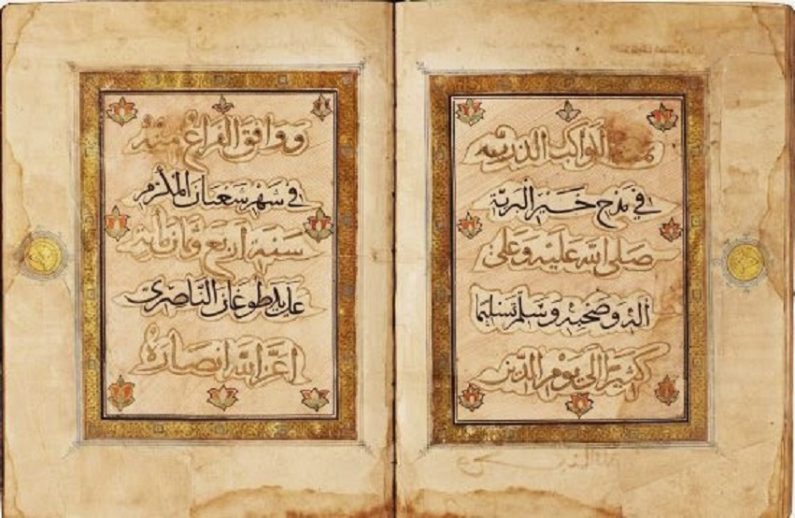 تمت الكواكب الدرية
في مدح خير البرية
صلى الله عليه وعلى
اله وصحبه وسلم تسليما
كثيرا الى يوم الدين
ووافق الفراغ منه
في شهر شعبان المكرم
سنة اربع
على يد طوغان الناصري
اعز الله انصاره